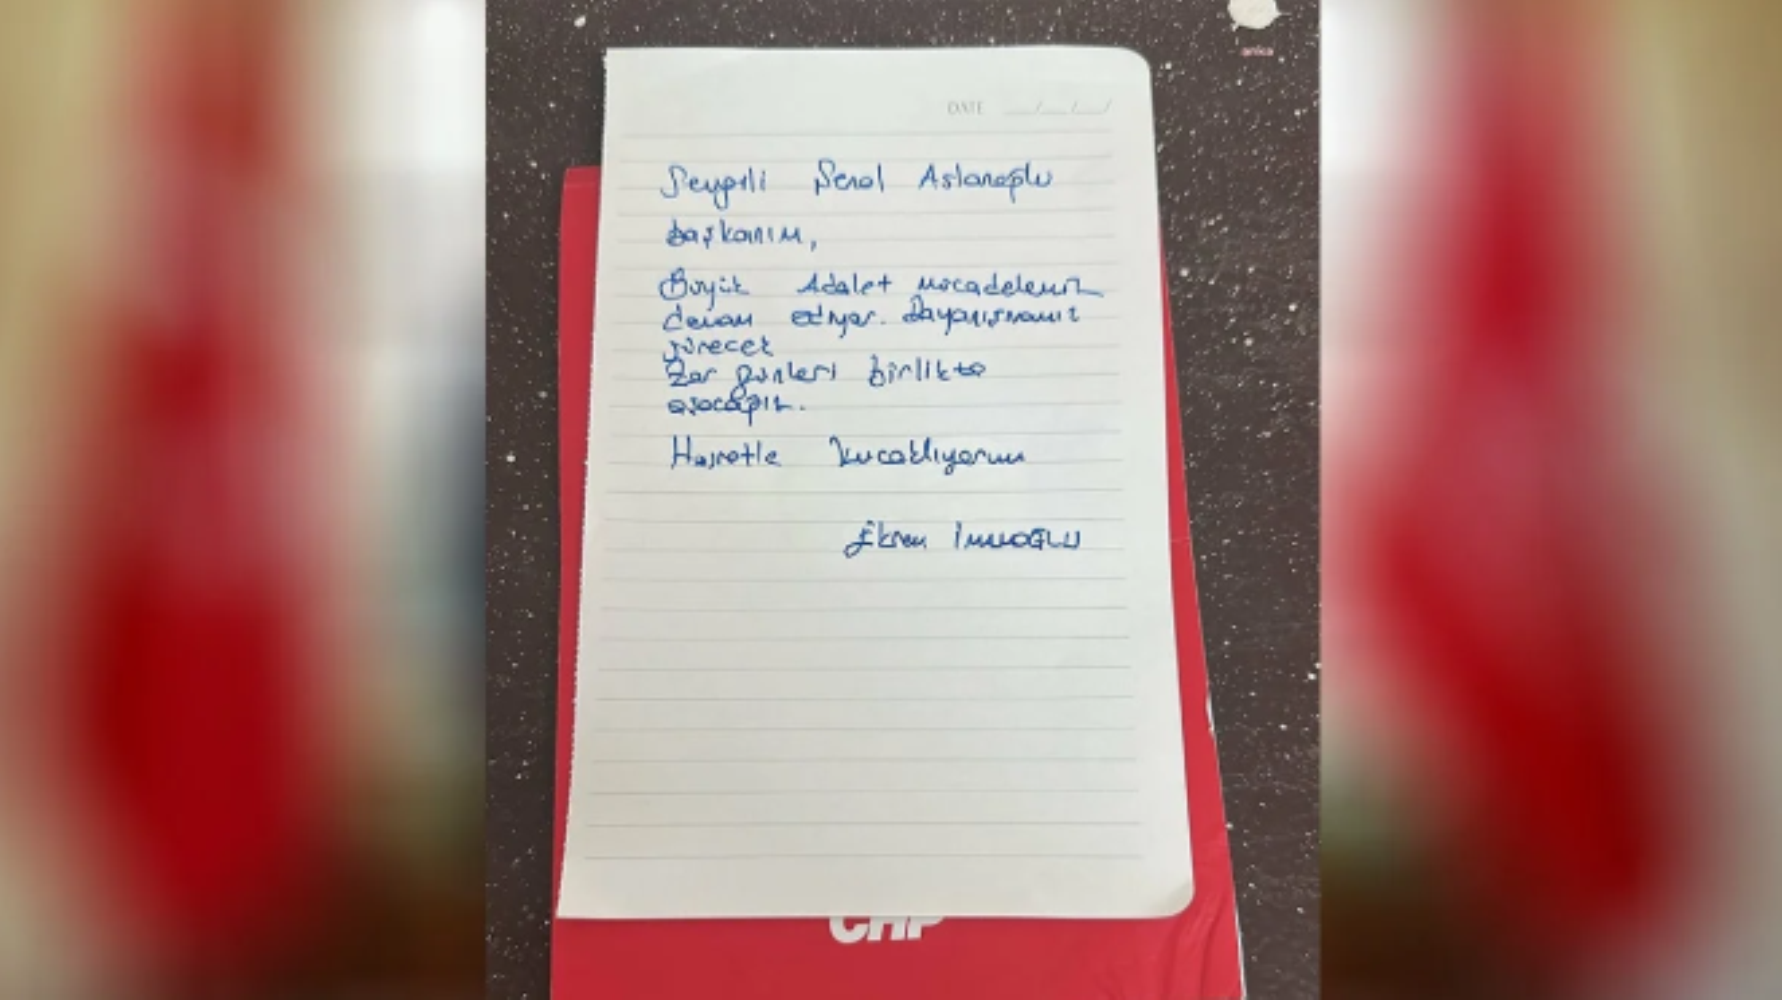 anka
DATE __/__/__/
Sevgili Şenol Aslanoğlu
Başkanım,
Büyük Adalet mücadelemiz
devam ediyor. Dayanışmamız
sürecek
Zor günleri birlikte
aşacağız.
Hasretle kucaklıyorum
Ekrem İmamoĞLU
CHP